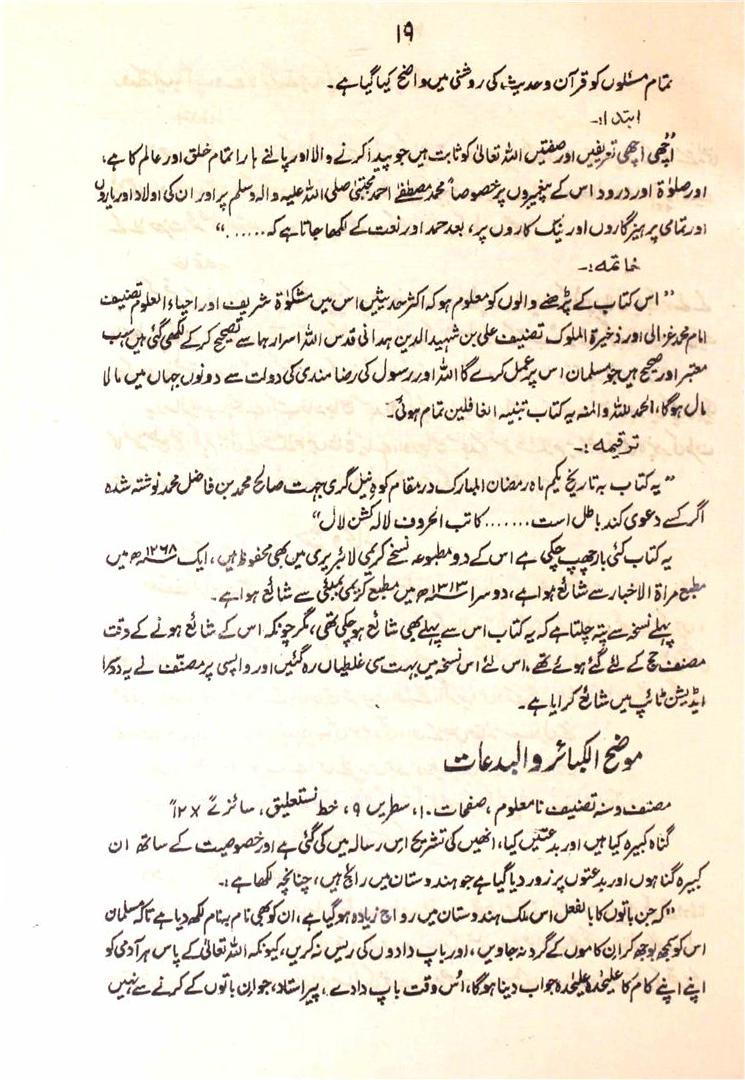 ۱۹
تمام مسئلوں کو قرآن و حدیث کی روشنی میں واضح کیا گیا ہے۔
ابتدا:۔
اچھی اچھی تعریفیں اور صفتیں اللہ تعالیٰ کو ثابت ہیں جو پیدا کرنے والا اور پالنے ہارا تمام خلق اور عالم کا ہے،
اور صلوٰۃ اور درود اس کے پیغمبروں پر خصوصاً محمد مصطفےٰ احمد مجتبیٰ صلی اللہ علیہ والہ وسلم پر اور ان کی اولاد اور یاروں
اور تمامی پرہیزگاروں اور نیک کاروں پر، بعد حمد اور نعت کے لکھا جاتا ہے کہ ......“
خاتمہ:۔
”اس کتاب کے پڑھنے والوں کو معلوم ہو کہ اکثر حدیثیں اس میں مشکوٰۃ شریف اور احیاء العلوم تصنیف
امام محمد غزالی اور ذخیرۃ الملوک تصنیف علی بن شہید الدین ہمدانی قدس اللہ اسرارہما سے تصحیح کر کے لکھی گئی ہیں سب
معتبر اور صحیح ہیں جو مسلمان اس پر عمل کرے گا اللہ اور رسول کی رضامندی کی دولت سے دونوں جہاں میں مالا
مال ہوگا، الحمد للہ والمنہ یہ کتاب تنبیہ الغافلین تمام ہوئی۔
ترقیمہ:۔
”یہ کتاب بہ تاریخ یکم ماہ رمضان المبارک در مقام کوہ نیل گری جہت صالح محمد بن فاضل محمد نوشتہ شدہ
اگر کسے دعویٰ کند باطل است....... کاتب الحروف لالہ کشن لال“
یہ کتاب کئی بار چھپ چکی ہے اس کے دو مطبوعہ نسخے کریمی لائبریری میں بھی محفوظ ہیں، ایک ۱۲۶۸ھ میں
مطبع مراۃ الاخبار سے شائع ہوا ہے، دوسرا ۱۳۱۳ھ میں مطبع کریمی بمبئی سے شائع ہوا ہے۔
پہلے نسخہ سے پتہ چلتا ہے کہ یہ کتاب اس سے پہلے بھی شائع ہو چکی تھی، مگر چونکہ اس کے شائع ہونے کے وقت
مصنف حج کے لئے گئے ہوئے تھے، اس لئے اس نسخہ میں بہت سی غلطیاں رہ گئیں اور واپسی پر مصنف نے یہ دوسرا
ایڈیشن ٹائپ میں شائع کرایا ہے۔
موضح الکبائر والبدعات
مصنف و سنہ تصنیف نامعلوم، صفحات ۱۰، سطریں ۹، خط نستعلیق، سائز ۷" x ۱۲"
گناہ کبیرہ کیا ہیں اور بدعتیں کیا، انھیں کی تشریح اس رسالہ میں کی گئی ہے اور خصوصیت کے ساتھ ان
کبیرہ گناہوں اور بدعتوں پر زور دیا گیا ہے جو ہندوستان میں رائج ہیں، چنانچہ لکھا ہے:۔
”کہ جن باتوں کا بالفعل اس ملک ہندوستان میں رواج زیادہ ہو گیا ہے، ان کو بھی نام بہ نام لکھ دیا ہے تاکہ مسلمان
اس کو سمجھ بوجھ کر ان کاموں کے گرد نہ جاویں، اور باپ دادوں کی ریس نہ کریں، کیونکہ اللہ تعالیٰ کے پاس ہر آدمی کو
اپنے اپنے کام کا علیٰحدہ علیٰحدہ جواب دینا ہوگا، اُس وقت باپ دادے، پیر استاد، جو ان باتوں کے کرنے سے نہیں